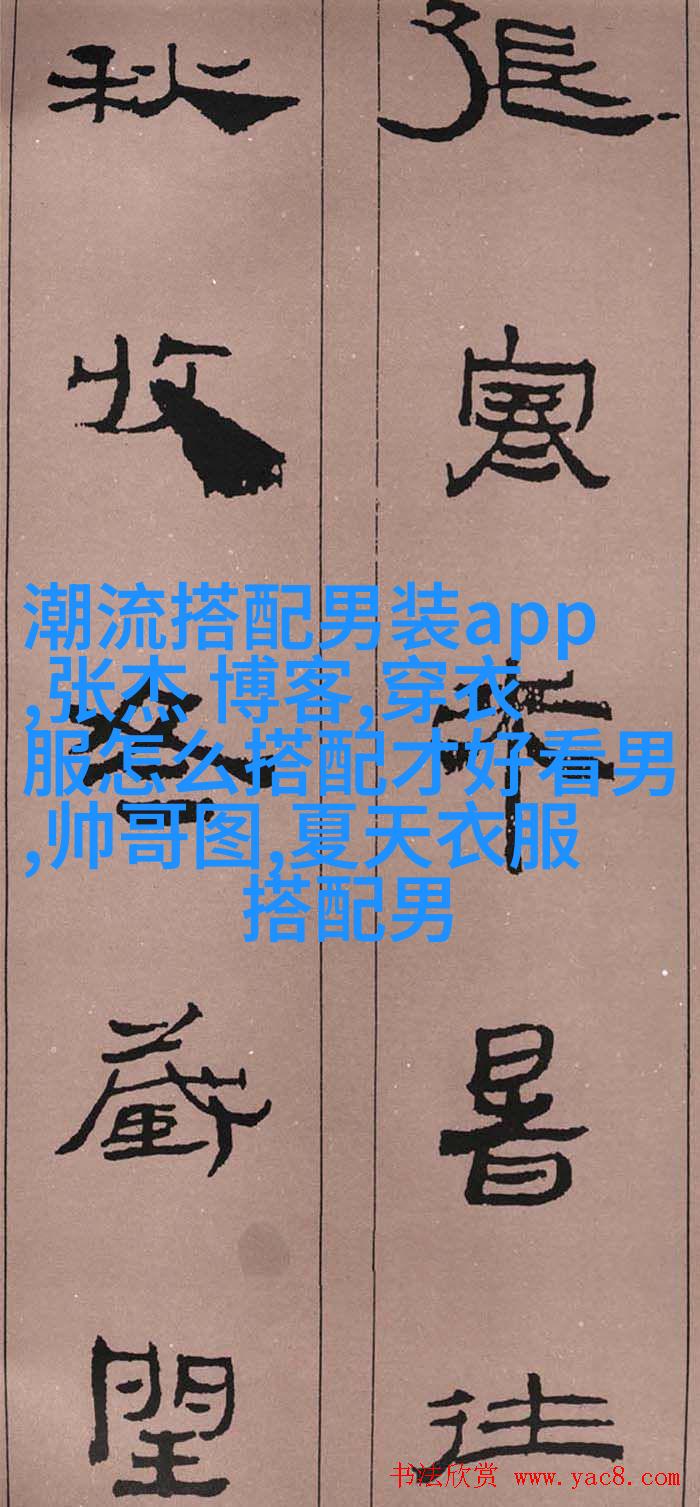 張寒來暑往
秋收冬藏閏
潮流搭配男装app
,张杰 博客,穿衣
服怎么搭配才好看男
,帅哥图,夏天衣服
搭配男
书法欣赏 www.yac8.com